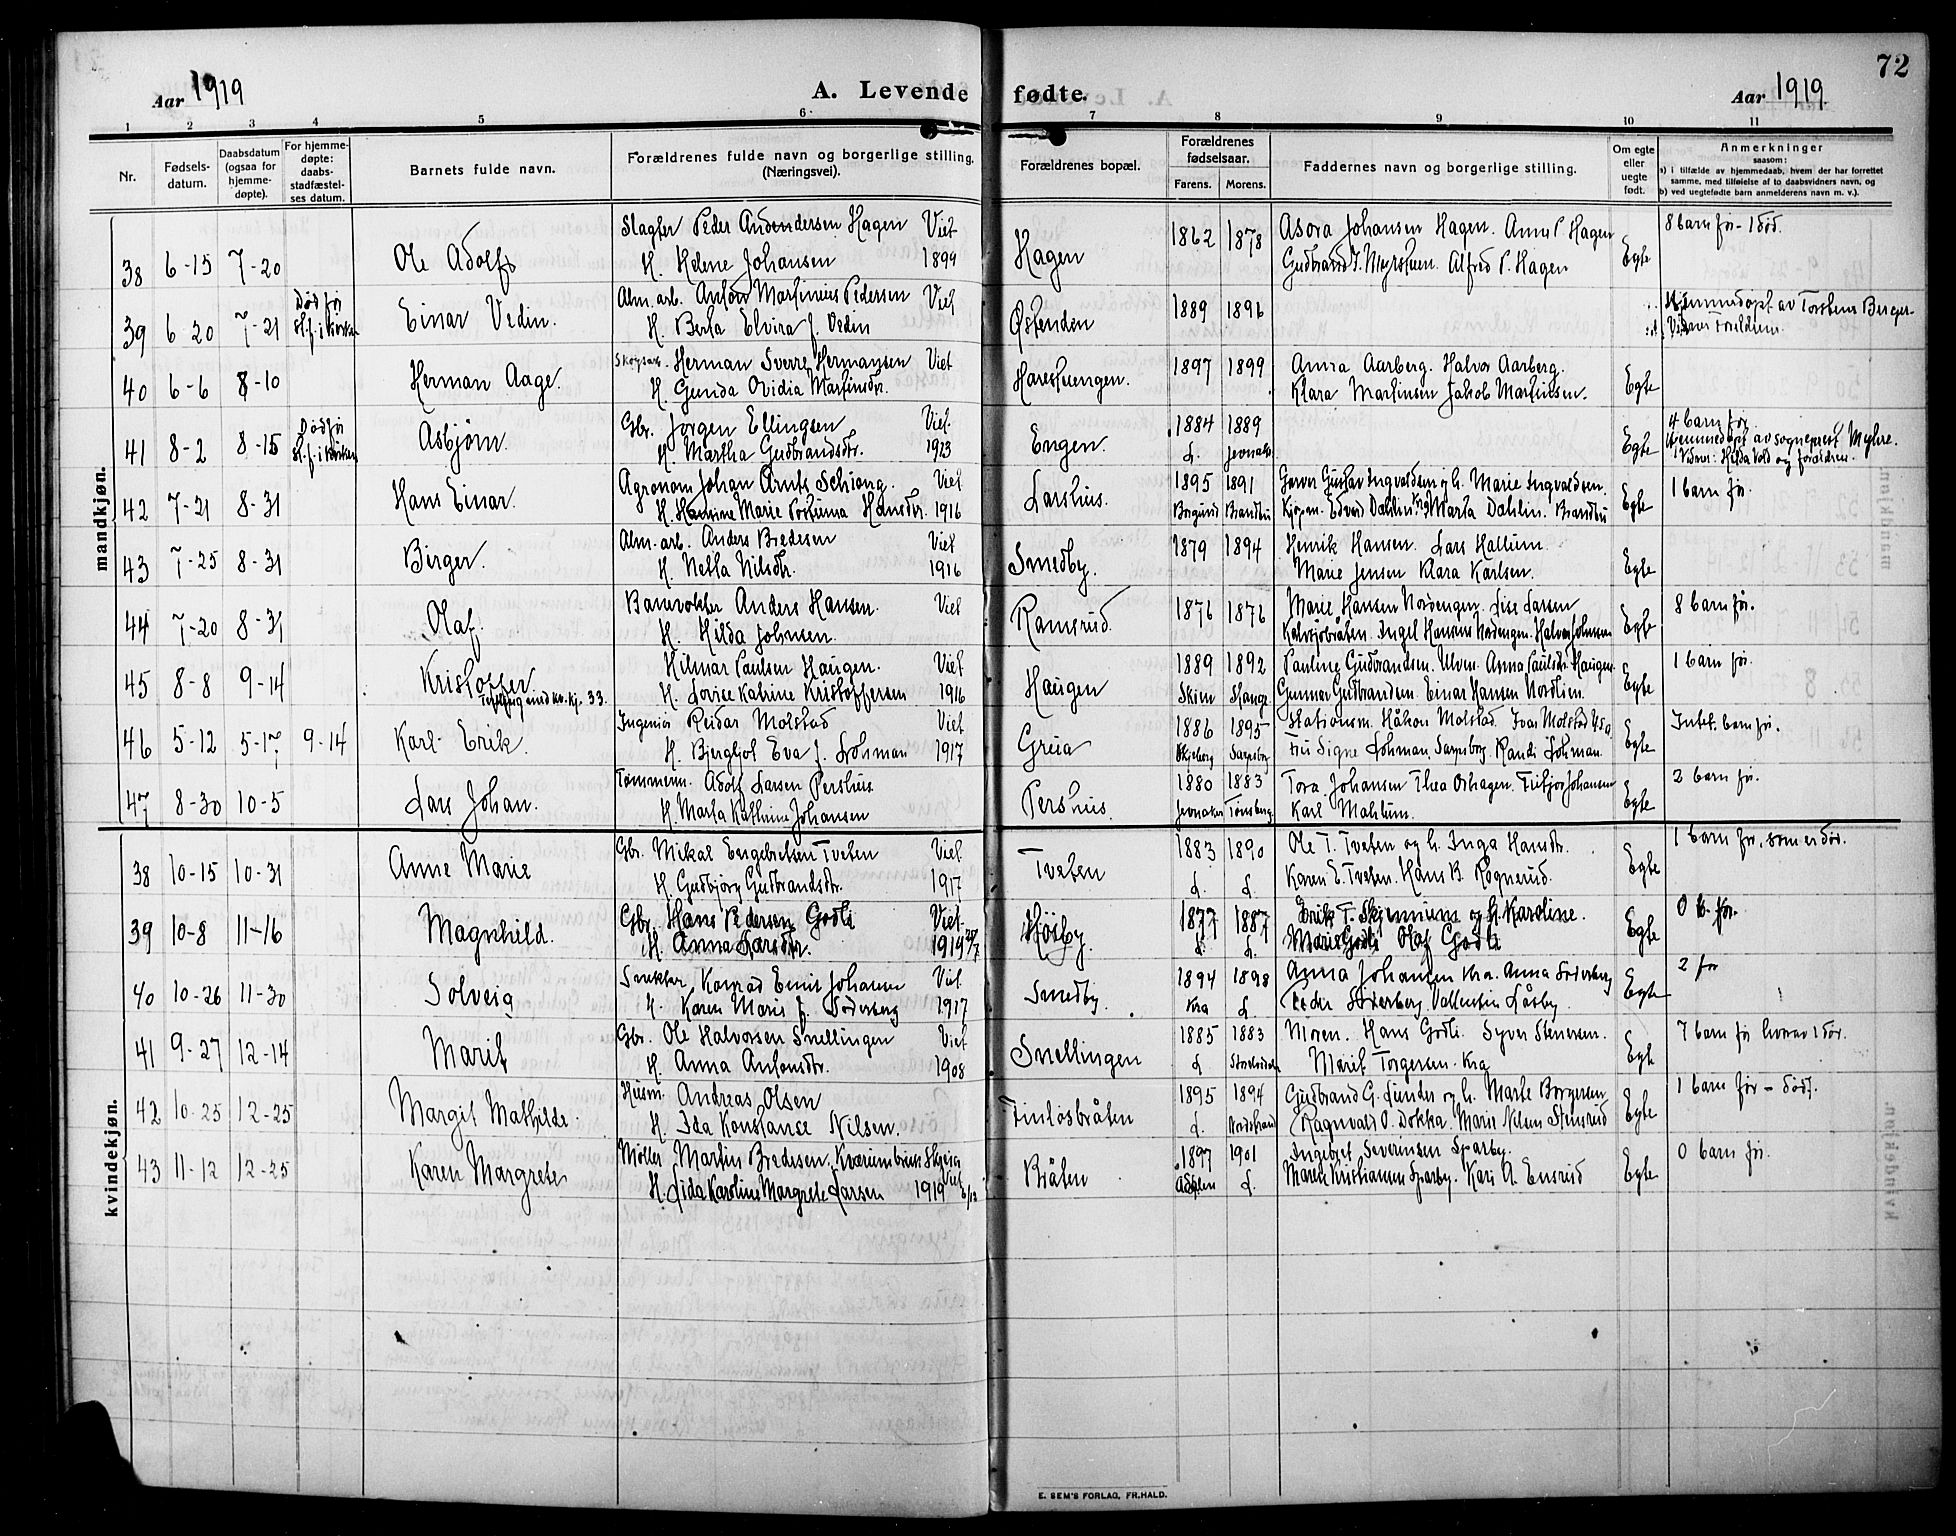 72
Aar 1919
A. Levende fødte.
Aar 1919
1 2 3 4 5 6 7 8 9 10 11
Nr.
Fødsels-
datum.
Daabsdatum
(ogsaa for
hjemme-
døpte).
For hjemme-
døpte:
daabs-
stadfæstel-
ses datum.
Barnets fulde navn.
Forældrenes fulde navn og borgerlige stilling.
(Næringsvei).
Forældrenes bopæl.
Forældrenes
fødselsaar.
Farens. Morens.
Faddernes navn og borgerlige stilling.
Om egte
eller
uegte
født.
Anmerkninger
saasom:
a) i tilfælde av hjemmedaab, hvem der har forrettet
samme, med tilføielse af to daabsvidners navn, og
b) ved uegtefødte barn anmelderens navn m. v.).
mandkjøn.
Slagter Peder Andersen Hagen Viet 1862 1878 Asora Johansen Hagen. Anne P. Hagen 8 barn før - 1 død.
38 6-15 7-20 Ole Adolf H. Helene Johansen 1899 Hagen Gudbrand J. Myrstuen. Alfred P. Hagen Egte
Død før Alm. arb. Anton Martinius Pedersen Viet 1889 1896 Hjemmedøpt av Torstens Berger
39 6-20 7-21 st.f. i kirken Einar Vedin. H. Berta Elvira f. Vedin Østenden
Herman Sverre Hermansen Viet 1897 1899 Anna Aarberg. Halvor Aarberg.
40 6-6 8-10 Herman Aage. H. Gunda Ovidia Martinsdtr. Harestuengen. Klara Martinsen Jakob Martinsen. Egte
Død før Gbr. Jørgen Ellingsen Viet. 1884 1889 4 barn før.
Hjemmedøpt av sogneprest Myhre.
41 8-2 8-15 st.f. i kirken Asbjørn. H. Martha Gudbrandsdtr. 1913 Engen. L. Jevnaker Egte Vidner: Hilda Vold og forældren.
Agronom Johan Arnts Schiong. Viet 1895 1891 Gustav Ingvaldsen og h. Marie Ingvaldsen. 1 barn før.
42 7-21 8-31 Hans Einar. H. Marie Hansdtr. 1916 Larshus. Borgund Brandbu Kjøpm. Edvard Dahlin Marta Dahlin. Brandbu Egte
Alm. arb. Anders Bredesen Viet 1879 1894 Henrik Hansen. Lars Hallum.
43 7-25 8-31 Birger. H. Netta Nilsdtr. 1916 Smedby. Marie Jensen Klara Karlsen. Egte
Banevokter Anders Hansen. Viet 1876 1876 Marie Hansen Nordengen. Lise Larsen 8 barn før.
44 7-20 8-31 Olaf. H. Hilda Johnsen. Ramsrud. Kalvsjøbråten. Ingel Hansen Nordengen. Halvor Johnsen Egte
Hilmar Paulsen Haugen. Viet 1889 1892 Pauline Gudbrandsen Ulven. Anna Paulsdtr. Haugen 1 barn før.
45 8-8 9-14 Kristoffer H. Lovise Katrine Kristoffersen 1916 Haugen Skien Stange Gunnar Gudbrandsen. Einar Hansen Nordlien. Egte
33.
Ingeniør Reidar Molstad Viet 1886 1895 Stationsm. Håkon Molstad. Ivar Molstad Intet barn før.
46 5-12 5-17 9-14 Karl Erik. H. Bjergljot Eva f. Lohman 1917 Greia Skjeberg Sarpsborg Fru Signe Lohman, Sarpsborg. Randi Lohman. Egte
Tømmerm. Adolf Larsen Pershus 1880 1883 Tora Johansen Thea Orhagen. Fritjov Johansen 2 barn før.
47 8-30 10-5 Lars Johan. H. Marta Kathrine Johansen Pershus. Jevnaker Tønsberg Karl Mahlum. Egte
kvindekjøn.
Gbr. Mikal Engebretsen Tveten Viet 1883 1890 Ole T. Tveten og h. Inga Hansdtr. 1 barn før, som er død.
38 10-15 10-31 Anne Marie H. Gudbjørg Gudbrandsdtr. 1917 Tveten L. L. Karen E. Tveten. Hans B. Rognerud. Egte
Gbr. Hans Pedersen Godli Viet. 1877 1887 Erik T. Skjerven og H. Karoline. 0 b. før.
39 10-8 11-16 Magnhild. H. Anna Larsdtr. 1919 Høiby. L. L. Marie Godli Olaf Godli Egte
Snekker Konrad Emil Johansen Viet. 1894 1898 Anna Johansen Kra. Anna Søderberg 2 før
40 10-26 11-30 Solveig H. Karen Marie f. Søderberg 1917 Smedby. Kra L. Peder Søderberg Vallentin Låsby. Egte
Gbr. Ole Halvorsen Snellingen Viet 1885 1883 Moren. Hans Godli. Syver Stenersen. 7 barn før hvorav 1 død.
41 9-27 12-14 Marit H. Anna Antonsdtr. 1908 Snellingen L Marit Torgersen. Kra Egte
Husm. Andreas Olsen 1895 1894 Gudbrand G. Lunder og h. Marte Borgersen 1 barn før - født.
42 10-25 12-25 Margit Mathilde. H. Ida Konstanse Nilsen. Finløsbråten L. Nordstrand Ragnvald O. Dokka. Marie Nilsen Stensrud Egte
Møller Martin Bredesen. 1897 1901 Ingebret Severinsen Sparby. 0 barn før.
43 11-12 12-25 Karen Margrete H. Lida Karoline Margrete Larsen 1919 Viet 6/12 Bråten Ådalen L. Maren Kristiansen Sparby. Kari A. Ensrud Egte
E. SEM'S FORLAG, FR.HALD.